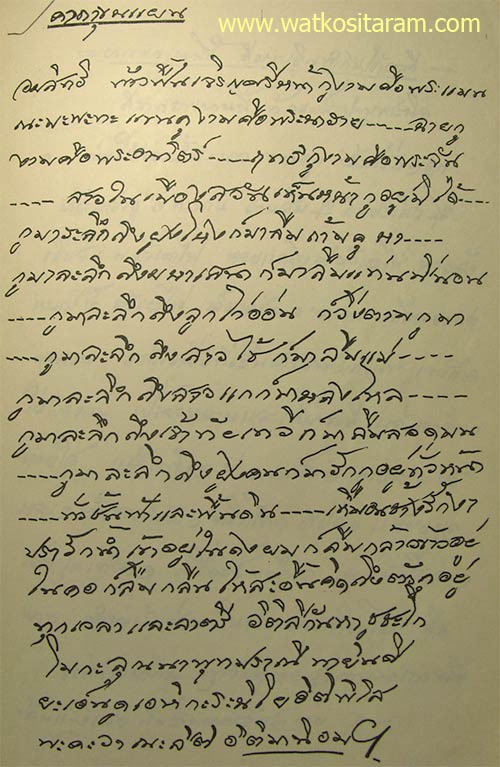 www.watkositaram.com
คาถาขุนแผน
โอมสิทธิ ท้าวฟื้นเจริญศรีหน้ากูงามคือพระแมน
นะมะพะทะ แขนกูงามคือพระนาราย----ฉายกู
งามคือพระอาทิตร์----บารมีกูงามคือพระจัน
----สาวในเมืองสวันเห็นหน้ากูอยู่มิได้----
กูมาระลึกถึงฝูงโขงก็มาลืมถ้ำคูหา----
กูมาละลึกถึงมหาเสนาก็มาลืมแท่นที่นอน
----กูมาละลึกถึงลูกไก่อ่อน ก็วิ่งตามกูมา
----กูมาละลึกถึงสาวใช้ก็มาลืมแม่----
กูมาละลึกถึงสาวแก่ก็มาหลงไหล----
กูมาละลึกถึงเจ้าไทยเทวีก็มาลืมสวดมน
----กูมาละลึกถึงฝูงคนก็มารักกูอยู่ทั่วหน้า
----ทั่วชั้นฟ้าและพื้นดิน----เหมือนช้างรักงา
ปลารักน้ำ เข้าอยู่ในดงผมก็ลืมกล้าวข้าวอยู่
ในคอก็ลืมกลืน ให้สะอื้นคิดถึงตัวกูอยู่
ทุกเวลาและลาตรี อิตลิกันหาชูชะโก
โมกะลุนนา พุทปรานี ทายินดี
ยะเอ็นดู เอหิกะระนิโย อิติพิโส
พะคะวา นะลิติ อิติมานิยม ฯ